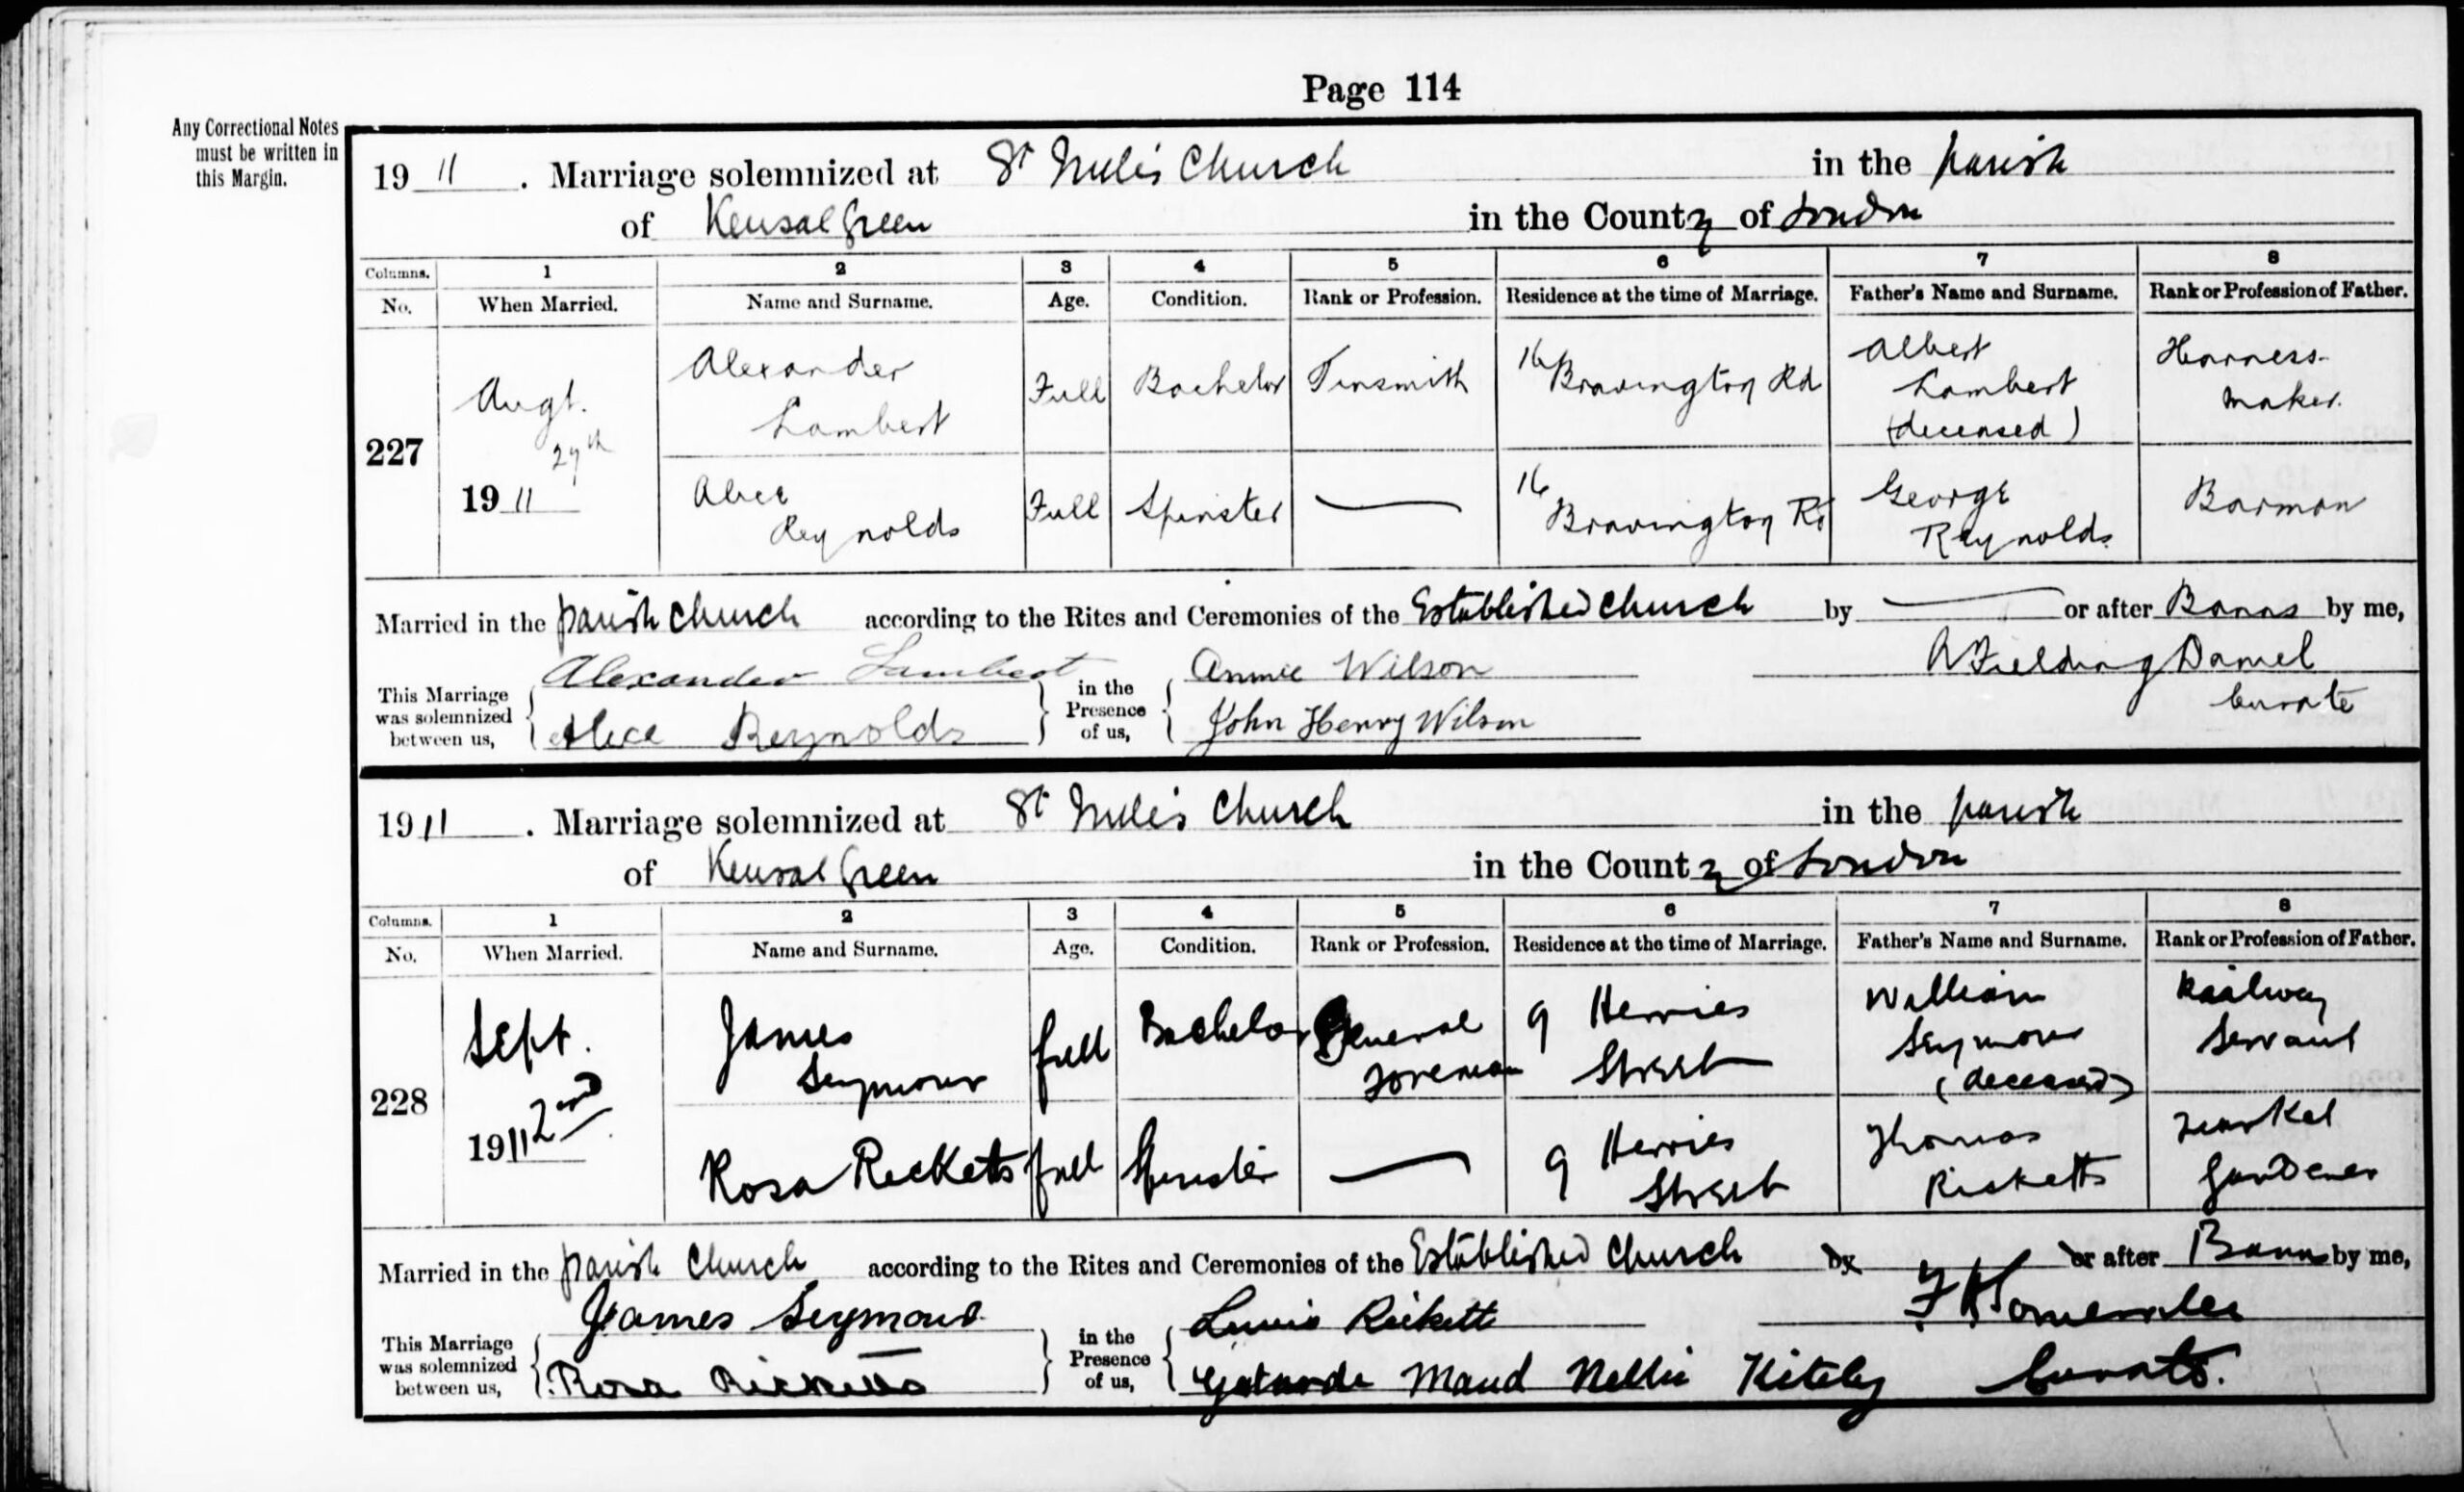 Page 114
Any Correctional Notes
must be written in
this Margin.
19 11 . Marriage solemnized at St Jude's Church in the parish
of Kensal Green in the County of London
Columns. 1 2 3 4 5 6 7 8
No. When Married. Name and Surname. Age. Condition. Rank or Profession. Residence at the time of Marriage. Father's Name and Surname. Rank or Profession of Father.
227
Augt.
27th
19 11
Alexander
Lambert
Full
Bachelor
Tinsmith
16 Bravington Rd
Albert
Lambert
(deceased)
Harness-
maker.
Alice
Reynolds
Full
Spinster
—
16
Bravington Rd
George
Reynolds
Barman
Married in the parish church according to the Rites and Ceremonies of the Established Church by — or after Banns by me,
This Marriage
was solemnized
between us,
Alexander Lambert
Alice Reynolds
in the
Presence
of us,
Annie Wilson
John Henry Wilson
A Fielding Daniel
Curate
19 11 . Marriage solemnized at St Jude's Church in the parish
of Kensal Green in the County of London
Columns. 1 2 3 4 5 6 7 8
No. When Married. Name and Surname. Age. Condition. Rank or Profession. Residence at the time of Marriage. Father's Name and Surname. Rank or Profession of Father.
228
Sept.
2nd
1911
James
Seymour
full
Bachelor
General
Foreman
9 Herries
Street
William
Seymour
(deceased)
Railway
Servant
Rosa Ricketts
full
Spinster
—
9 Herries
Street
Thomas
Ricketts
Market
Gardener
Married in the parish church according to the Rites and Ceremonies of the Established Church by or after Banns by me,
This Marriage
was solemnized
between us,
James Seymour
Rosa Ricketts
in the
Presence
of us,
Rickett
Gertrude Maud Nellie Kiteley
Curate.